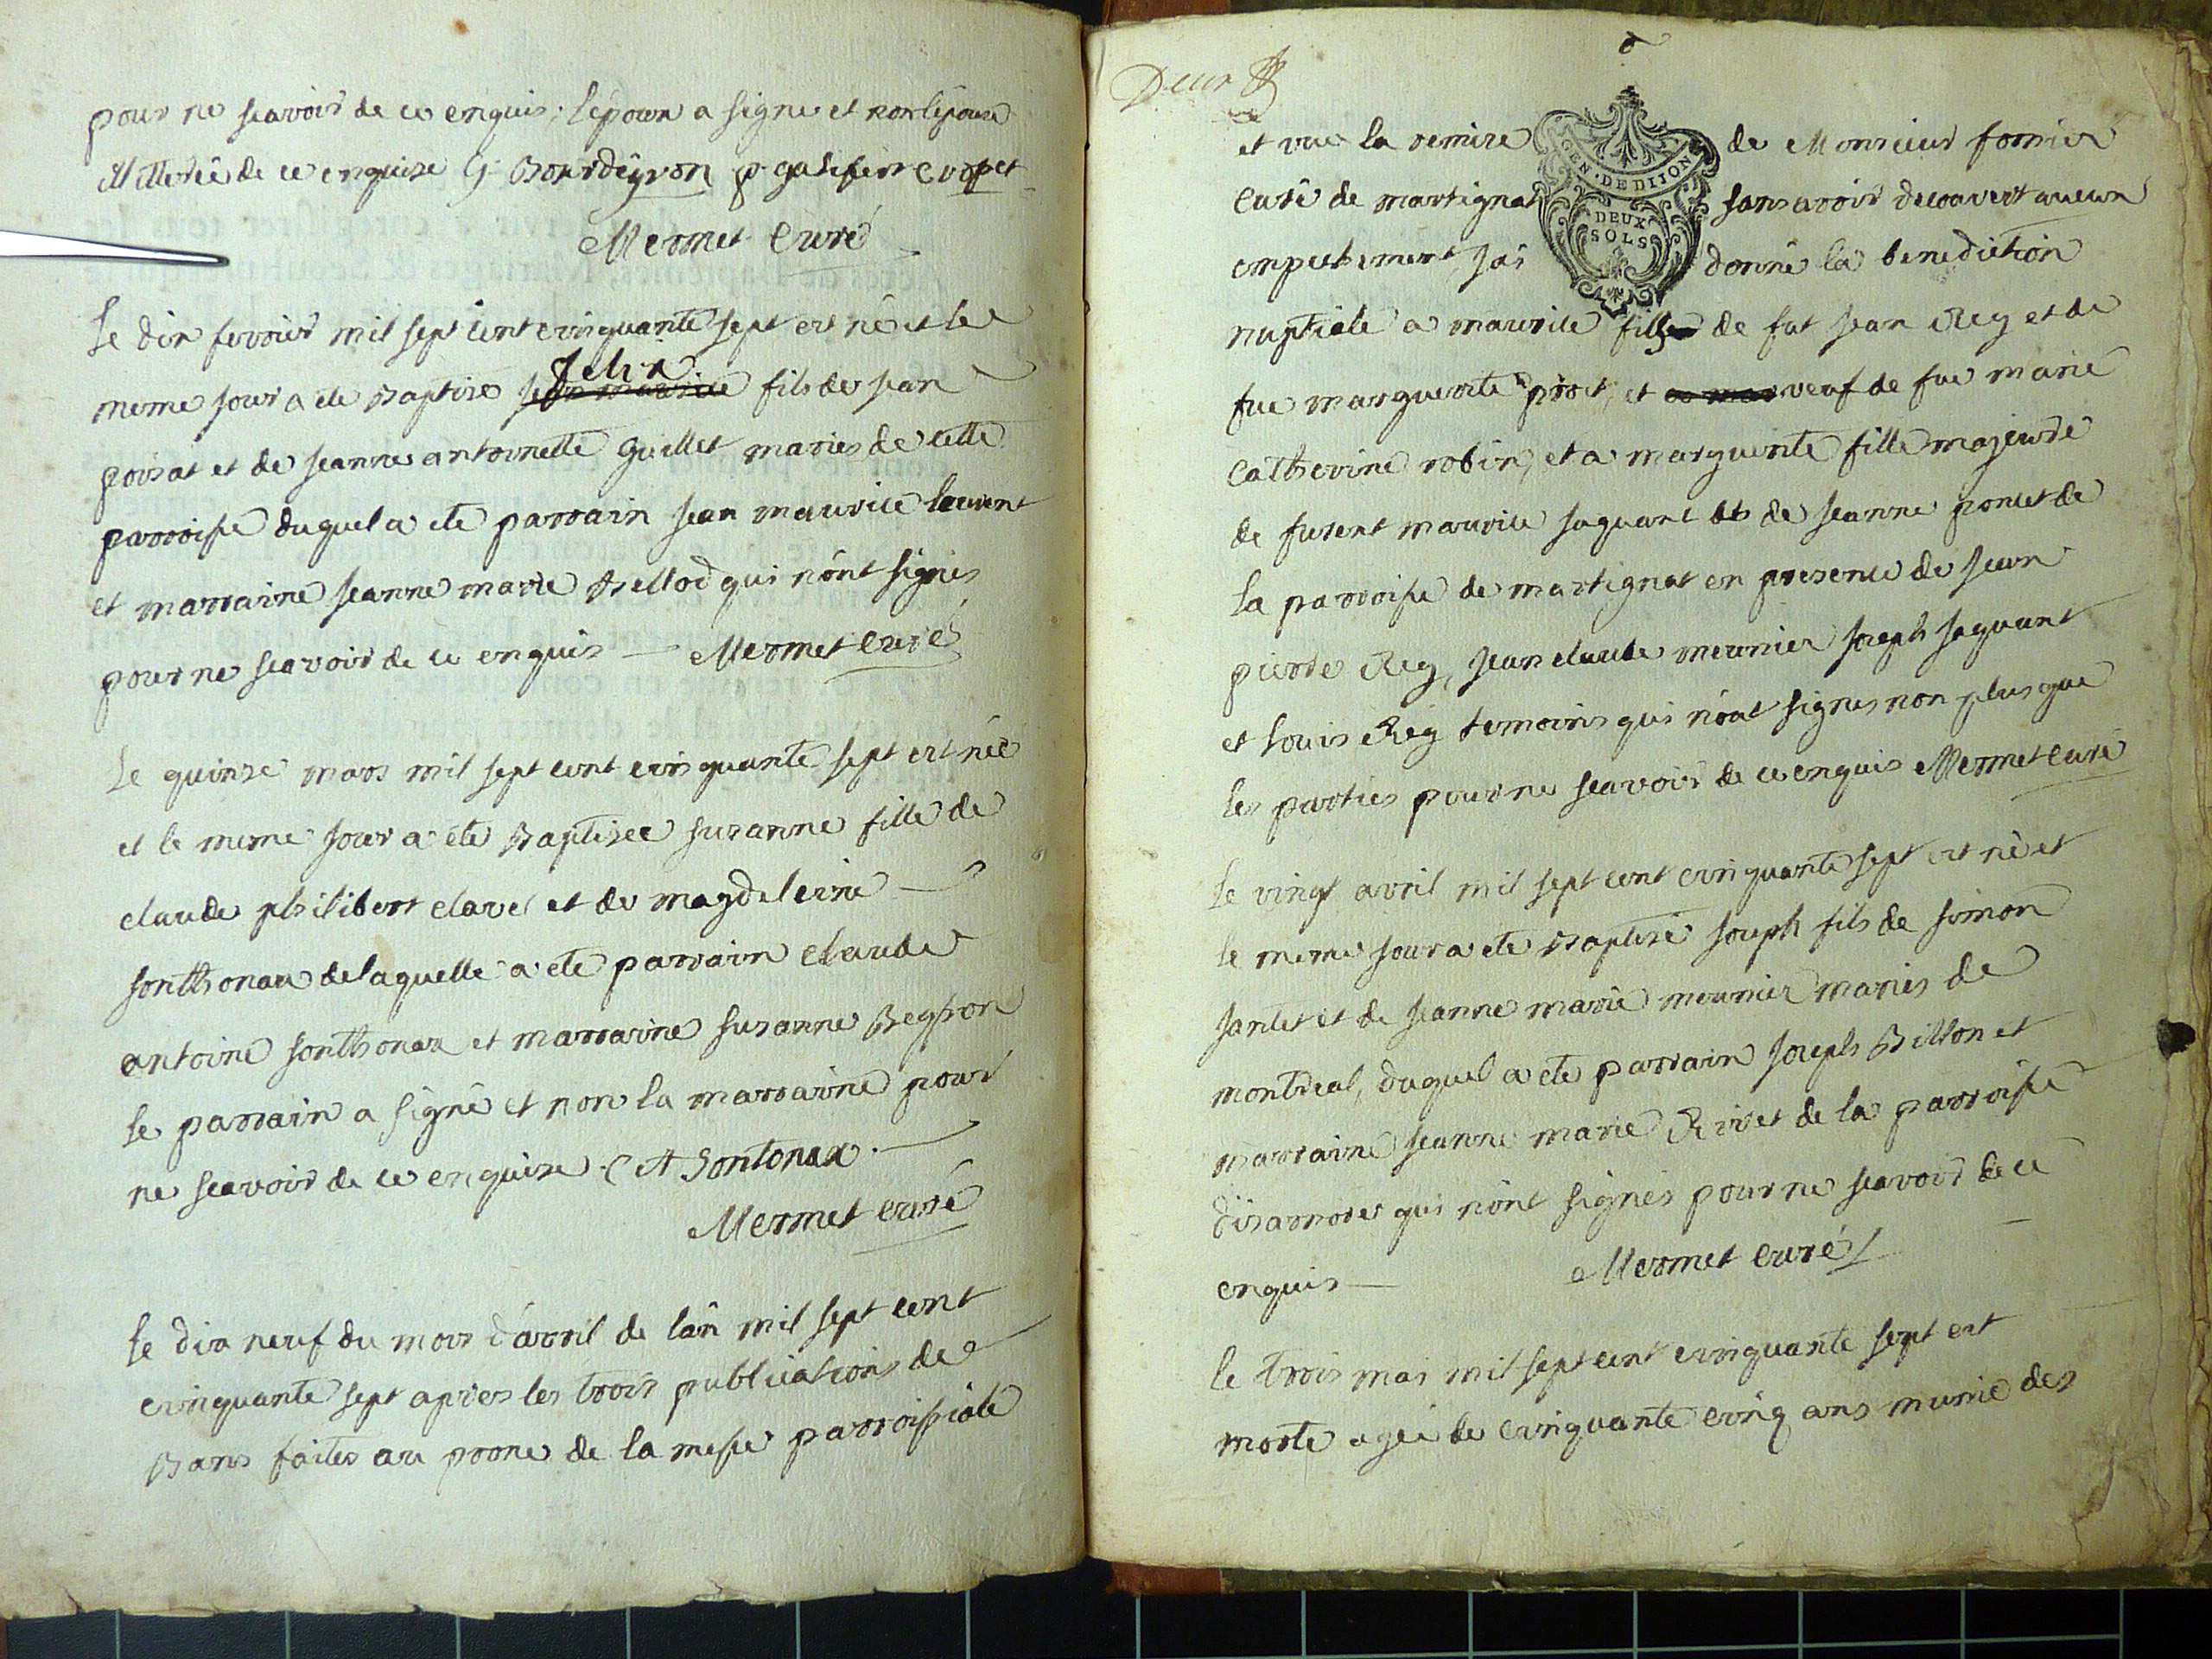 pour ne scavoir de ce enquis; lépoux a signe et non lépouse
illiterée de ce enquise G. Bourdeyron p. galifeir cropet
Mermet Curé
Le dix fevrier mil sept cent cinquante sept est né et le
meme jour a ete Baptise felix fils de jean
poisat et de jeanne antoinette Guillet maries de cette
parroisse duquel a ete parrain jean maurice laurent
et marraine jeanne marie Bellod qui nônt signés
pour ne scavoir de ce enquis — Mermet Curé
Le quinze mars mil sept cent cinquante sept est née
et le meme jour a ete Baptisee susanne fille de
claude philibert clavel et de magdeleine
sonthonax delaquelle a ete parrain claude
antoine sonthonax et marraine susanne Beypon
le parrain a signé et non la marraine pour
ne scavoir de ce enquise. C A Sontonax.
Mermet curé
Le dix neuf du mois d'avril de lân mil sept cent
cinquante sept apres les trois publications de
Bans faites au prone de la messe parroissiale
Deux
GEN. DE DIJON
DEUX SOLS
et vue la remise de Monsieur fornier
Curé de martignat sans avoir decouvert aucun
empechement, jai donné la benediction
nuptiale a maurice fils de fut jean Rey et de
fue marguerite piroit, et veuf de fue marie
catherine robin, et a marguerite fille majeure
de furent maurice jaguant et de jeanne poncet de
la parroisse de martignat en presence de jean
pierre Rey, jean claude meunier joseph jaguant
et louis Rey temoins qui nônt signes non plus que
les parties pour ne scavoir de ce enquis Mermet curé
Le vingt avril mil sept cent cinquante sept est né et
le meme jour a ete Baptisé joseph fils de simon
jantet et de jeanne marie meunier maries de
montreal, duquel a ete parrain joseph Billon et
marraine jeanne marie Rivet de la parroisse
disarnores qui nônt signés pour ne scavoir de ce
enquis — Mermet curé
Le trois mai mil sept cent cinquante sept est
morte agée de cinquante cinq ans munie des